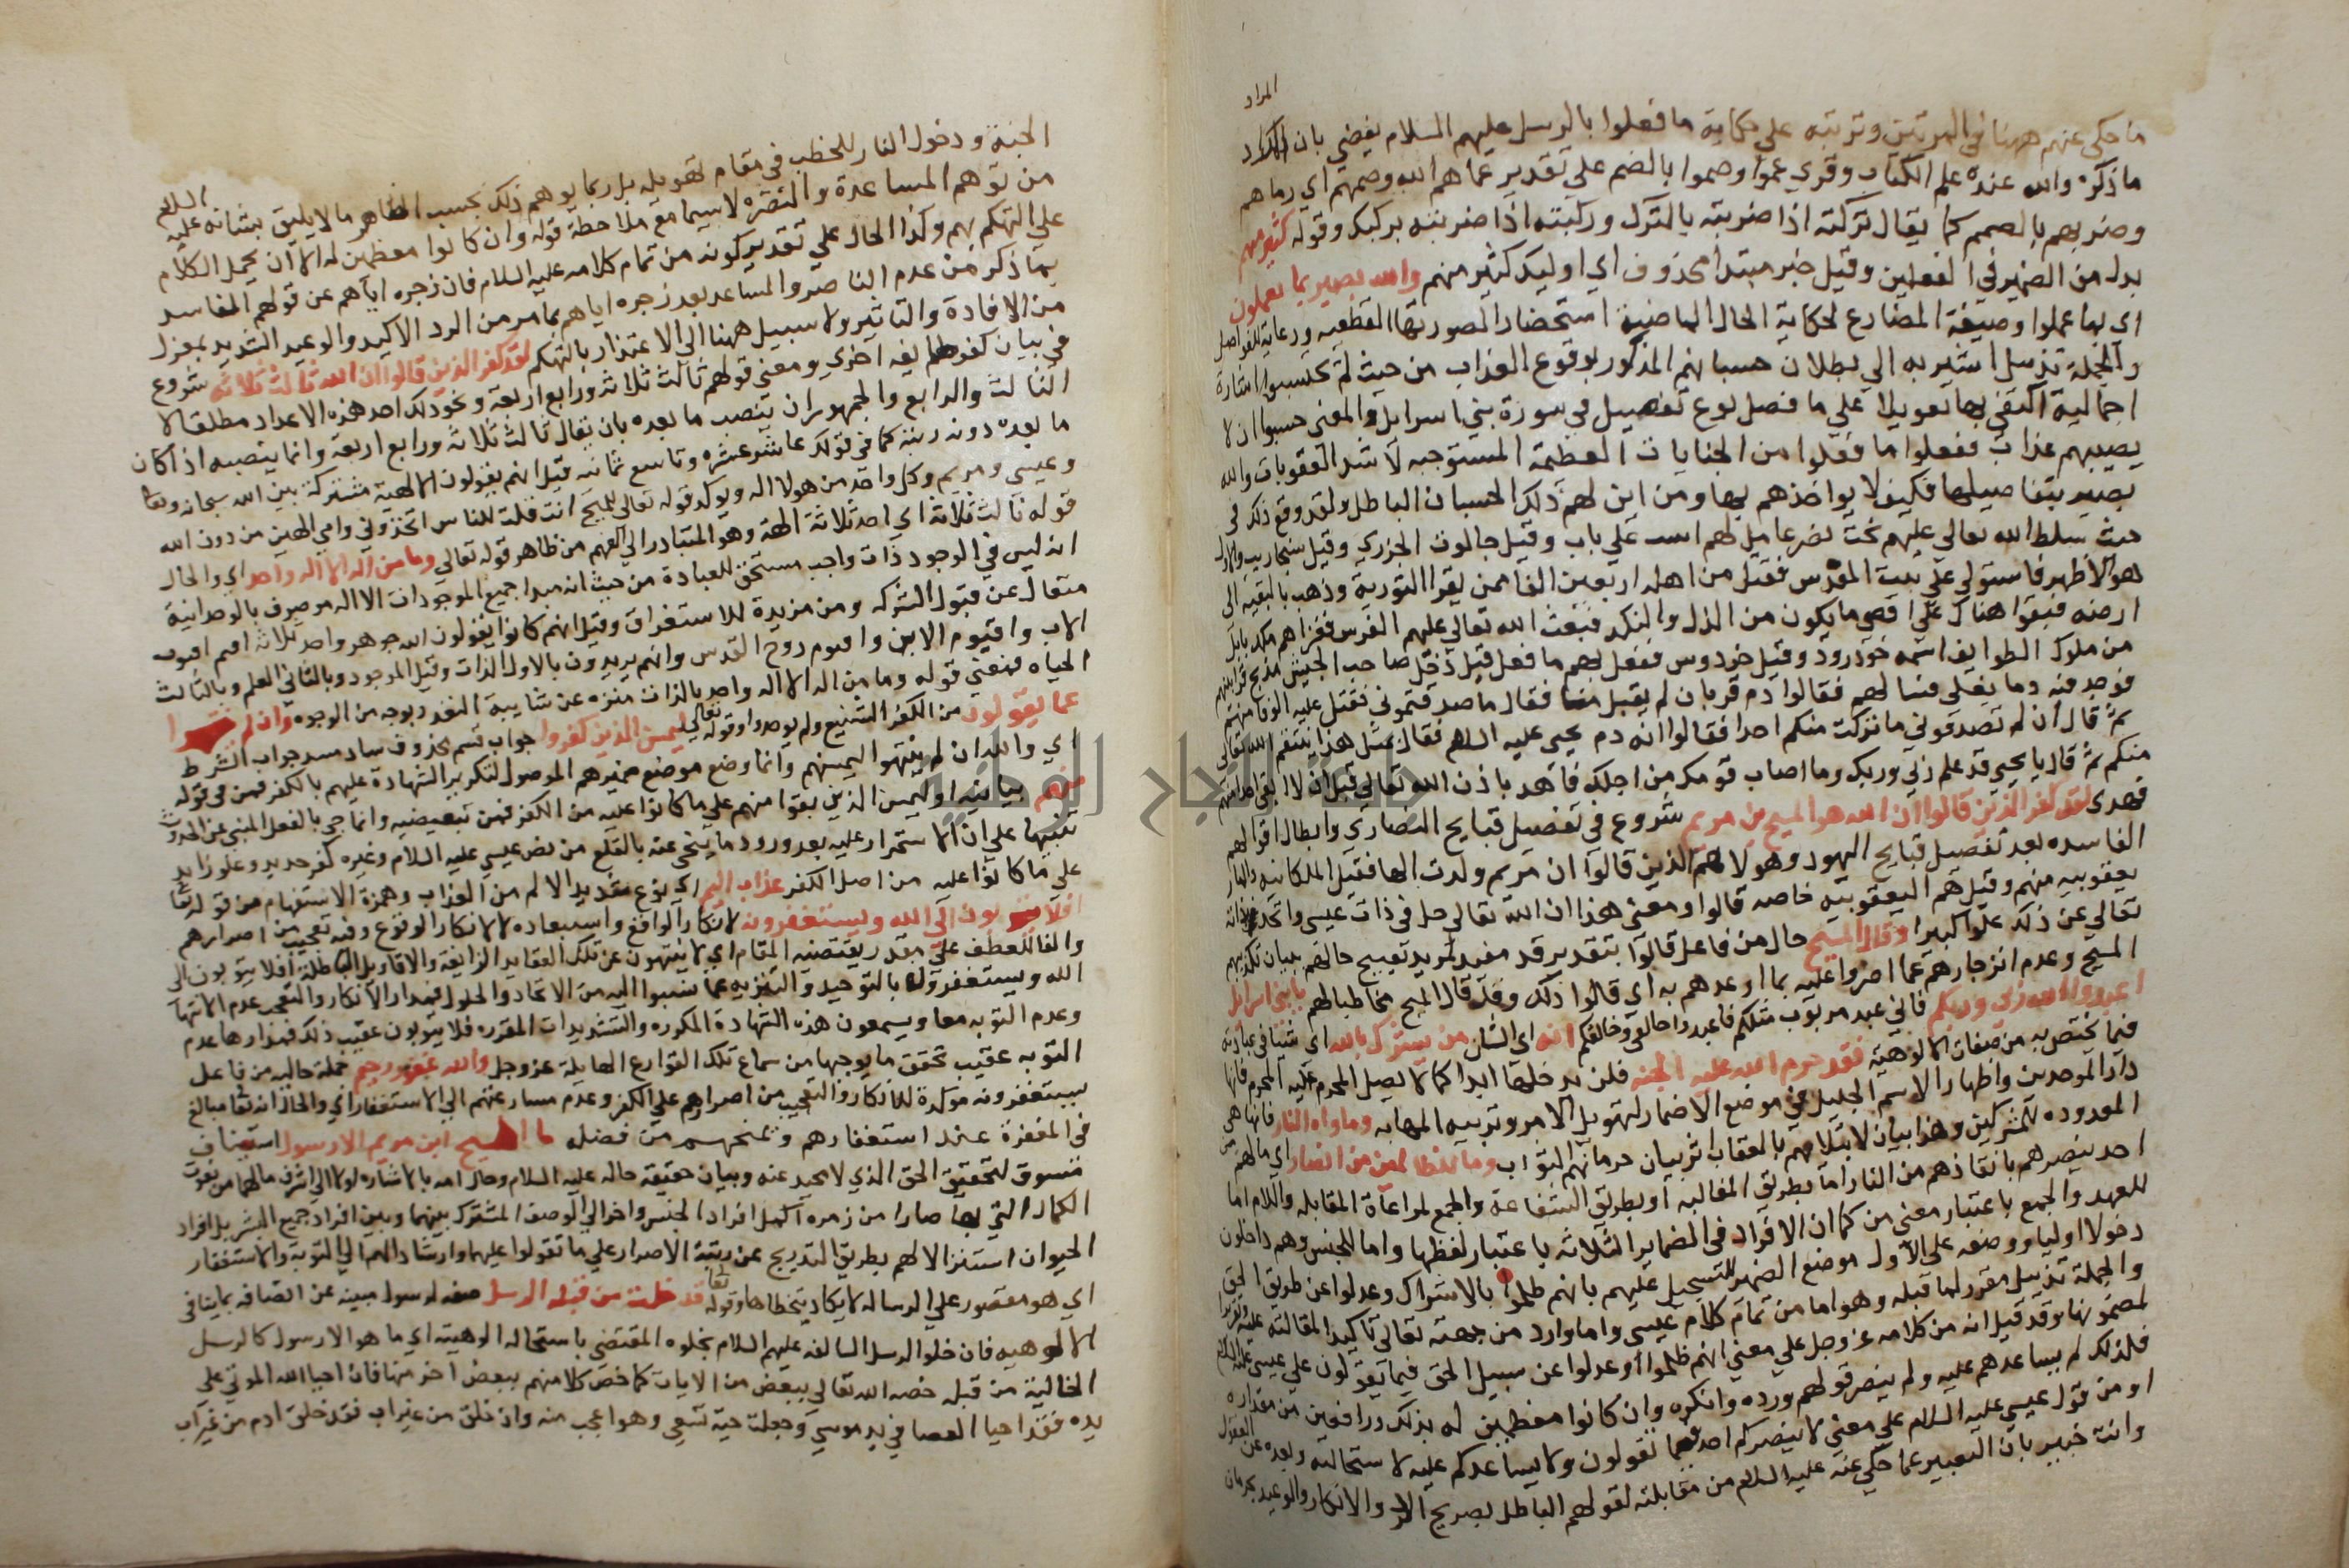 المراد
ما حكى عنهم ههنا في المرتين وترتبه على حكاية ما فعلوا بالرسل عليهم السلام يقضي بان المراد
ما ذكره والله عنده علم الكتاب وقري عموا وصموا بالضم على تقدير عماهم الله وصمهم اي رماهم
وضربهم بالصمم كما يقال تركته اذا ضربته بالترك وركبته اذا ضربته بركبك وقوله كثير منهم
بدل من الضمير في الفعلين وقيل خبر مبتدأ محذوف اي اوليك كثير منهم والله بصير بما يعملون
اي بما عملوا وصيغة المضارع لحكاية الحال الماضية استحضارا لصورتها الفظيعه ورعاية للفواصل
والجملة تذييل اشير به الي بطلان حسبانهم المذكور بوقوع العذاب من حيث لم يحتسبوا اشارة
اجمالية اكتفي بها تعويلا على ما فصل نوع تفصيل في سورة بني اسرايل والمعنى حسبوا ان لا
يصيبهم عذاب ففعلوا ما فعلوا من الجنايات العظيمة المستوجبه لاشد العقوبات والله
بصير بتفاصيلها فكيف لا يواخذهم بها ومن اين لهم ذلك الحسبان الباطل ولقد وقع ذلك في
حيث سلط الله تعالى عليهم بخت نصر عامل لهراسب على بابل وقيل جالوت الجزري وقيل سنجاريب والاول
هو الاظهر فاستولى على بيت المقدس فقتل من اهله اربعين الفا ممن يقرا التورية وذهب بالبقيه الى
ارضه فبقوا هناك على اقصى ما يكون من الذل والنكد فبعث الله تعالى عليهم الفرس فغزاهم ملك بابل
من ملوك الطوايف اسمه خوذرود وقيل خردوس ففعل بهم ما فعل قيل دخل صاحب الجيش مذبح قرابينهم
فوجد فيه دما يغلى فسالهم فقالوا دم قربان لم يقبل منا فقال ما صدقتموني فقتل عليه الوفا منهم
ثم قال ان لم تصدقوني ما تركت منكم احدا فقالوا انه دم يحيى عليه السلام فقال بمثل هذا ينتقم الله تعالى
منكم ثم قال يا يحيى قد علم ربي وربك وما اصاب قومك من اجلك فاهد باذن الله تعالى قبل ان لا ابقي احدا منهم
فهدى لقد كفر الذين قالوا ان الله هو المسيح بن مريم شروع في تفصيل قبايح النصارى وابطال اقوالهم
الفاسده بعد تفصيل قبايح اليهود وهولا هم الذين قالوا ان مريم ولدت الها فقيل الملكانيه والمار
يعقوبيه منهم وقيل هم اليعقوبيه خاصه قالوا ومعنى هذا ان الله تعالى حل في ذات عيسى واتحد بذاته
تعالى عن ذلك علوا كبيرا وقال المسيح حال من فاعل قالوا بتقدير قد مفيد لمزيد تقبيح حالهم ببيان تكذيبهم
المسيح وعدم انزجارهم عما اصروا عليه بما اوعدهم به اي قالوا ذلك وقد قال المسيح مخاطبا لهم يا بني اسرايل
اعبدوا الله ربي وربكم فاني عبد مربوب مثلكم فاعبدوا خالقي وخالقكم انه اي الشان من يشرك بالله اي شيا في عبادته
فيما يختص به من صفات الالوهية فقد حرم الله عليه الجنه فلن يدخلها ابدا كما لا يصل المحرم عليه الى المحرم فانها
دار الموحدين واظهار الاسم الجليل في موضع الاضمار لتهويل الامر وتربيه المهابه وماواه النار فانها هي
المعدوده للمشركين وهذا بيان لابتلايهم بالعقاب اثر بيان حرمانهم الثواب وما للظالمين من انصار اي ما لهم من
احد ينصرهم بانقاذهم من النار اما بطريق المغالبه او بطريق الشفاعة والجمع لمراعاة المقابله واللام اما
للعهد والجمع باعتبار معنى من كما ان الافراد في الضماير الثلاثه باعتبار لفظها واما للجنس وهم داخلون
دخولا اوليا ووضعه على الاول موضع الضمير للتسجيل عليهم بانهم ظلموا بالاشراك وعدلوا عن طريق الحق
والجملة تذييل مقرر لما قبله وهو اما من تمام كلام عيسى واما وارد من جهته تعالى تاكيدا لمقالته عليه السلام وتقريرا
لمضمونها وقد قيل انه من كلامه عز وجل على معنى انهم ظلموا او عدلوا عن سبيل الحق فيما يقولون على عيسى عليه السلام
فلذلك لم يساعدهم عليه ولم ينصر قولهم ورده وانكره وان كانوا معظمين له بذلك رافعين من مقداره
او من قول عيسى عليه السلام على معنى لا ينصركم احد فيما تقولون ولا يساعدكم عليه لاستحالته وبعده عن العقول
وانت خبير بان التعبير عما حكي عنه عليه السلام من مقابلته لقولهم الباطل بصريح الرد والانكار والوعيد بحرمان
الجنة ودخول النار للخطب في مقام تهويله بل ربما يوهم ذلك بحسب الظاهر ما لا يليق بشانه عليه السلام
من توهم المساعدة والنصره لا سيما مع ملاحظة قوله وان كانوا معظمين له الا ان يحمل الكلام
على التهكم بهم وكذا الحال على تقدير كونه من تمام كلامه عليه السلام فان زجره اياهم عن قولهم الفاسد
بما ذكر من عدم الناصر والمساعد بعد زجره اياهم بما مر من الرد الاكيد والوعيد الشديد بمعزل
من الافادة والتاثير ولا سبيل ههنا الى الاعتذار بالتهكم لقد كفر الذين قالوا ان الله ثالث ثلاثه شروع
في بيان كفر طايفه اخرى ومعنى قولهم ثالث ثلاثه ورابع اربعة ونحو ذلك احد هذه الاعداد مطلقا لا
الثالث والرابع والجمهور ان ينصب ما بعده بان يقال ثالث ثلاثة ورابع اربعة وانما ينصبه اذا كان
ما بعده دونه رتبة كما في قولك عاشر عشره وتاسع ثمانيه قيل انهم يقولون الالهية مشتركة بين الله سبحانه وتعا
وعيسى ومريم وكل واحد من هولا اله ويوكد قوله تعالى للمسيح انت قلت للناس اتخذوني وامي الهين من دون الله
قوله ثالث ثلاثة اي احد ثلاثة الهة وهو المتبادر الى الفهم من ظاهر قوله تعالى وما من اله الا اله واحد اي والحال
انه ليس في الوجود ذات واجب مستحق للعبادة من حيث انه مبدا جميع الموجودات الا اله موصوف بالوحدانية
متعال عن قبول الشركه ومن مزيدة للاستغراق وقيل انهم كانوا يقولون الله جوهر واحد ثلاثة اقانيم اقنوم
الاب واقنوم الابن واقنوم روح القدس وانهم يريدون بالاول الذات وقيل الوجود وبالثاني العلم وبالثالث
الحياه فمعنى قوله وما من اله الا اله واحد بالذات منزه عن شايبة التعدد بوجه من الوجوه وان لم ينتهوا
عما يقولون من الكفر الشنيع ولم يوحدوا وقوله تعالى ليمسن الذين كفروا جواب قسم محذوف ساد مسد جواب الشرط
اي والله ان لم ينتهوا ليمسنهم وانما وضع موضع ضميرهم الموصول لتكرير الشهادة عليهم بالكفر فمن في قوله
منهم بيانيه او ليمسن الذين بقوا منهم على ما كانوا عليه من الكفر فمن تبعيضيه وانما جي بالفعل المنبي عن الحدوث
تنبيها على ان الاستمرار عليه بعد ورود ما ينحى عنه بالقلع من نص عيسى عليه السلام وغيره كفر جديد وغلو زايد
على ما كانوا عليه من اصل الكفر عذاب اليم اي نوع شديد الالم من العذاب وهمزة الاستفهام من قوله تعا
افلا يتوبون الى الله ويستغفرونه لانكار الواقع واستبعاده لا لانكار الوقوع وفيه تعجيب من اصرارهم
والفا للعطف على مقدر يقتضيه المقام اي الا ينتهون عن تلك العقايد الزايغة والاقاويل الباطلة افلا يتوبون الى
الله ويستغفرونه بالتوحيد والتنزيه عما نسبوا اليه من الاتحاد والحلول فمدار الانكار والتعجب عدم الانتها
وعدم التوبه معا ويسمعون هذه الشهادة المكرره والتشديدات المقرره فلا يتوبون عقيب ذلك فمدارها عدم
التوبه عقيب تحقق ما يوجبها من سماع تلك القوارع الهايلة عز وجل والله غفور رحيم جملة حاليه من فاعل
يستغفرونه موكدة للانكار والتعجيب من اصرارهم على الكفر وعدم مسارعتهم الى الاستغفار اي والحال انه تعا مبالغ
في المغفرة عند استغفارهم ويمنحهم من فضله ما المسيح ابن مريم الا رسول استيناف
مسوق لتحقيق الحق الذي لا محيد عنه وبيان حقيقة حاله عليه السلام وحال امه بالاشاره اولا الى اشرف ما لهما من نعوت
الكمال التي بها صارا من زمره اكمل افراد الجنس واخرا الى الوصف المشترك بينهما وبين افراد جميع البشر بل افراد
الحيوان استنزالا لهم بطريق التدريج عن رتبة الاصرار على ما تقولوا عليهما وارشادا لهم الى التوبة والاستغفار
اي هو مقصور على الرساله لا يكاد يتخطاها وقوله تعا قد خلت من قبله الرسل صفه لرسول مبينه عن اتصافه بما ينافي
الالوهيه فان خلو الرسل السالفه عليهم السلام بخلوه المقتضي باستحاله الوهيته اي ما هو الا رسول كالرسل
الخالية من قبله خصه الله تعالى ببعض من الايات كما خص كلا منهم ببعض اخر منها فان احيا الله الموتى على
يده فقد احيا العصا في يد موسى وجعلت حية تسعى وهو اعجب منه وان خلق من غير اب فقد خلق ادم من غير اب
جامعة النجاح الوطنية